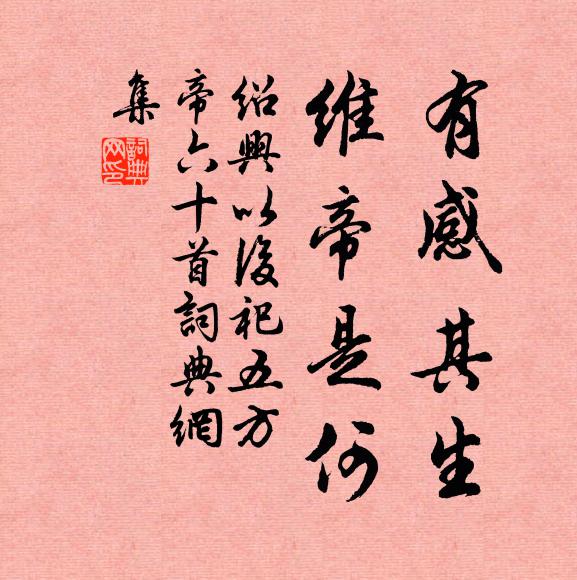 有感其生
維帝是何
紹興以後祀五方
帝六十首詞典網
集
詞典
网印